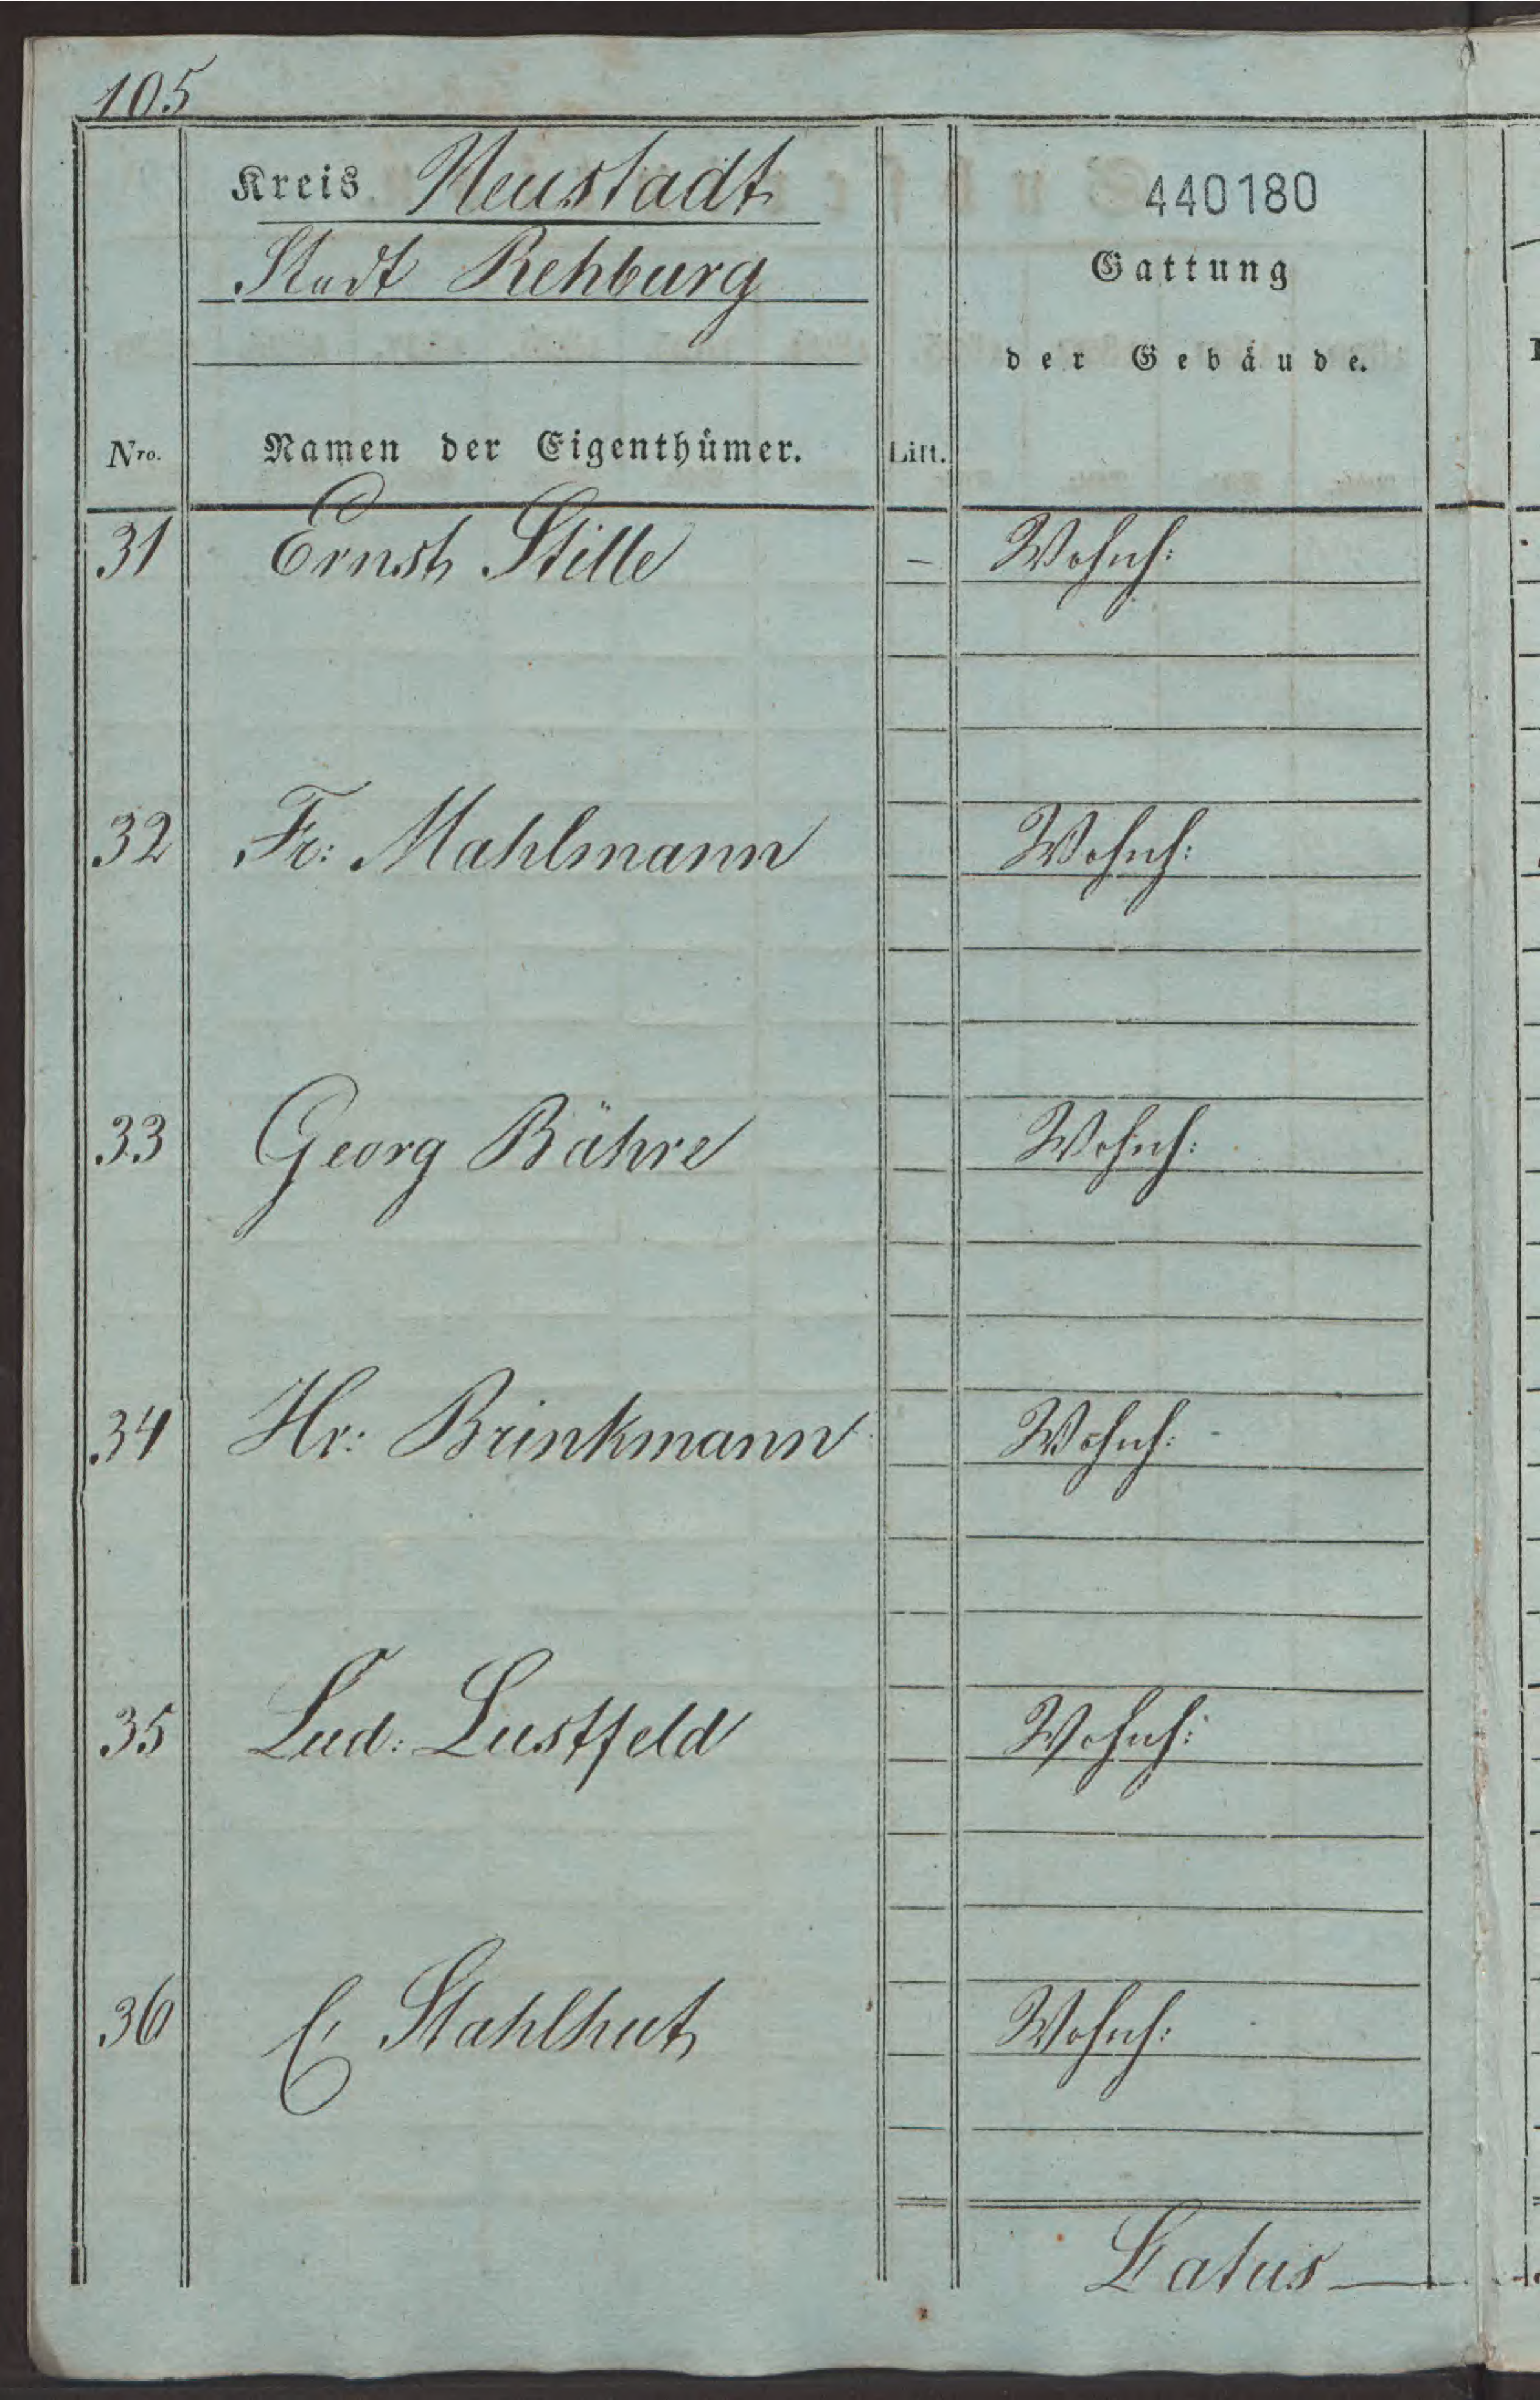 105
Kreis Neustadt
Stadt Rehburg
440180
Gattung
der Gebäude.
Nro. Namen der Eigenthümer. Litt.
31 Ernst Stille – Wohnh:
32 Fr: Mahlmann Wohnh:
33 Georg Bähre Wohnh:
34 Hr: Brinkmann Wohnh:
35 Lud: Lustfeld Wohnh:
36 C, Stahlhut Wohnh:
Latus